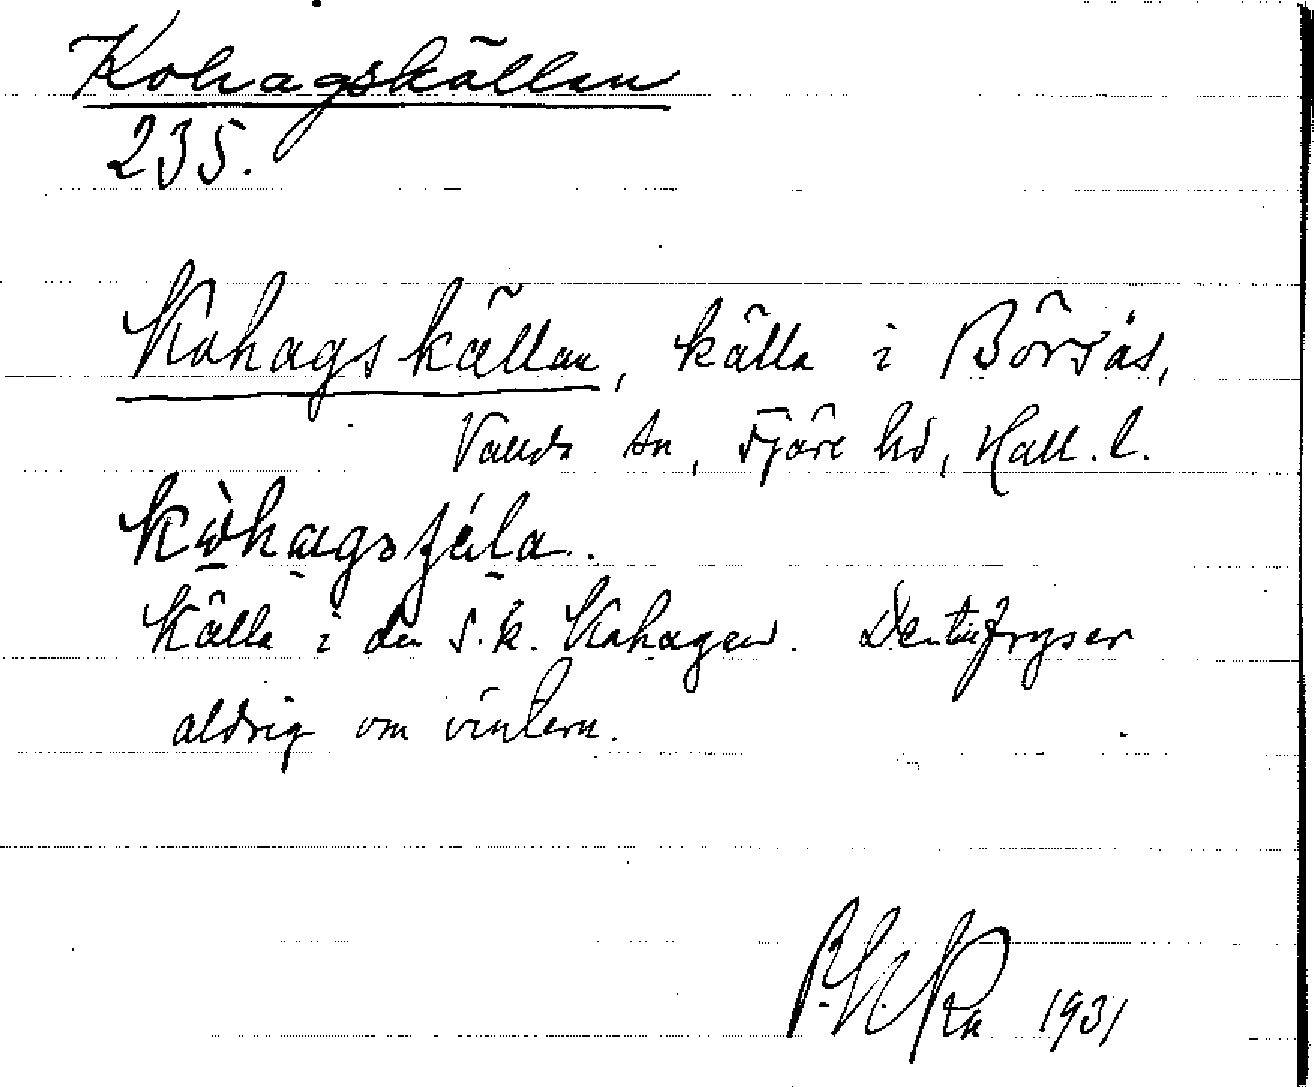 Kohagskällan
235.
Kohagskällan, källa i Börsås,
Vallda sn, Fjäre hd, Hall. l.
Källa i den s.k. Kohagen. Den tillfryser
aldrig om vintern.
1931